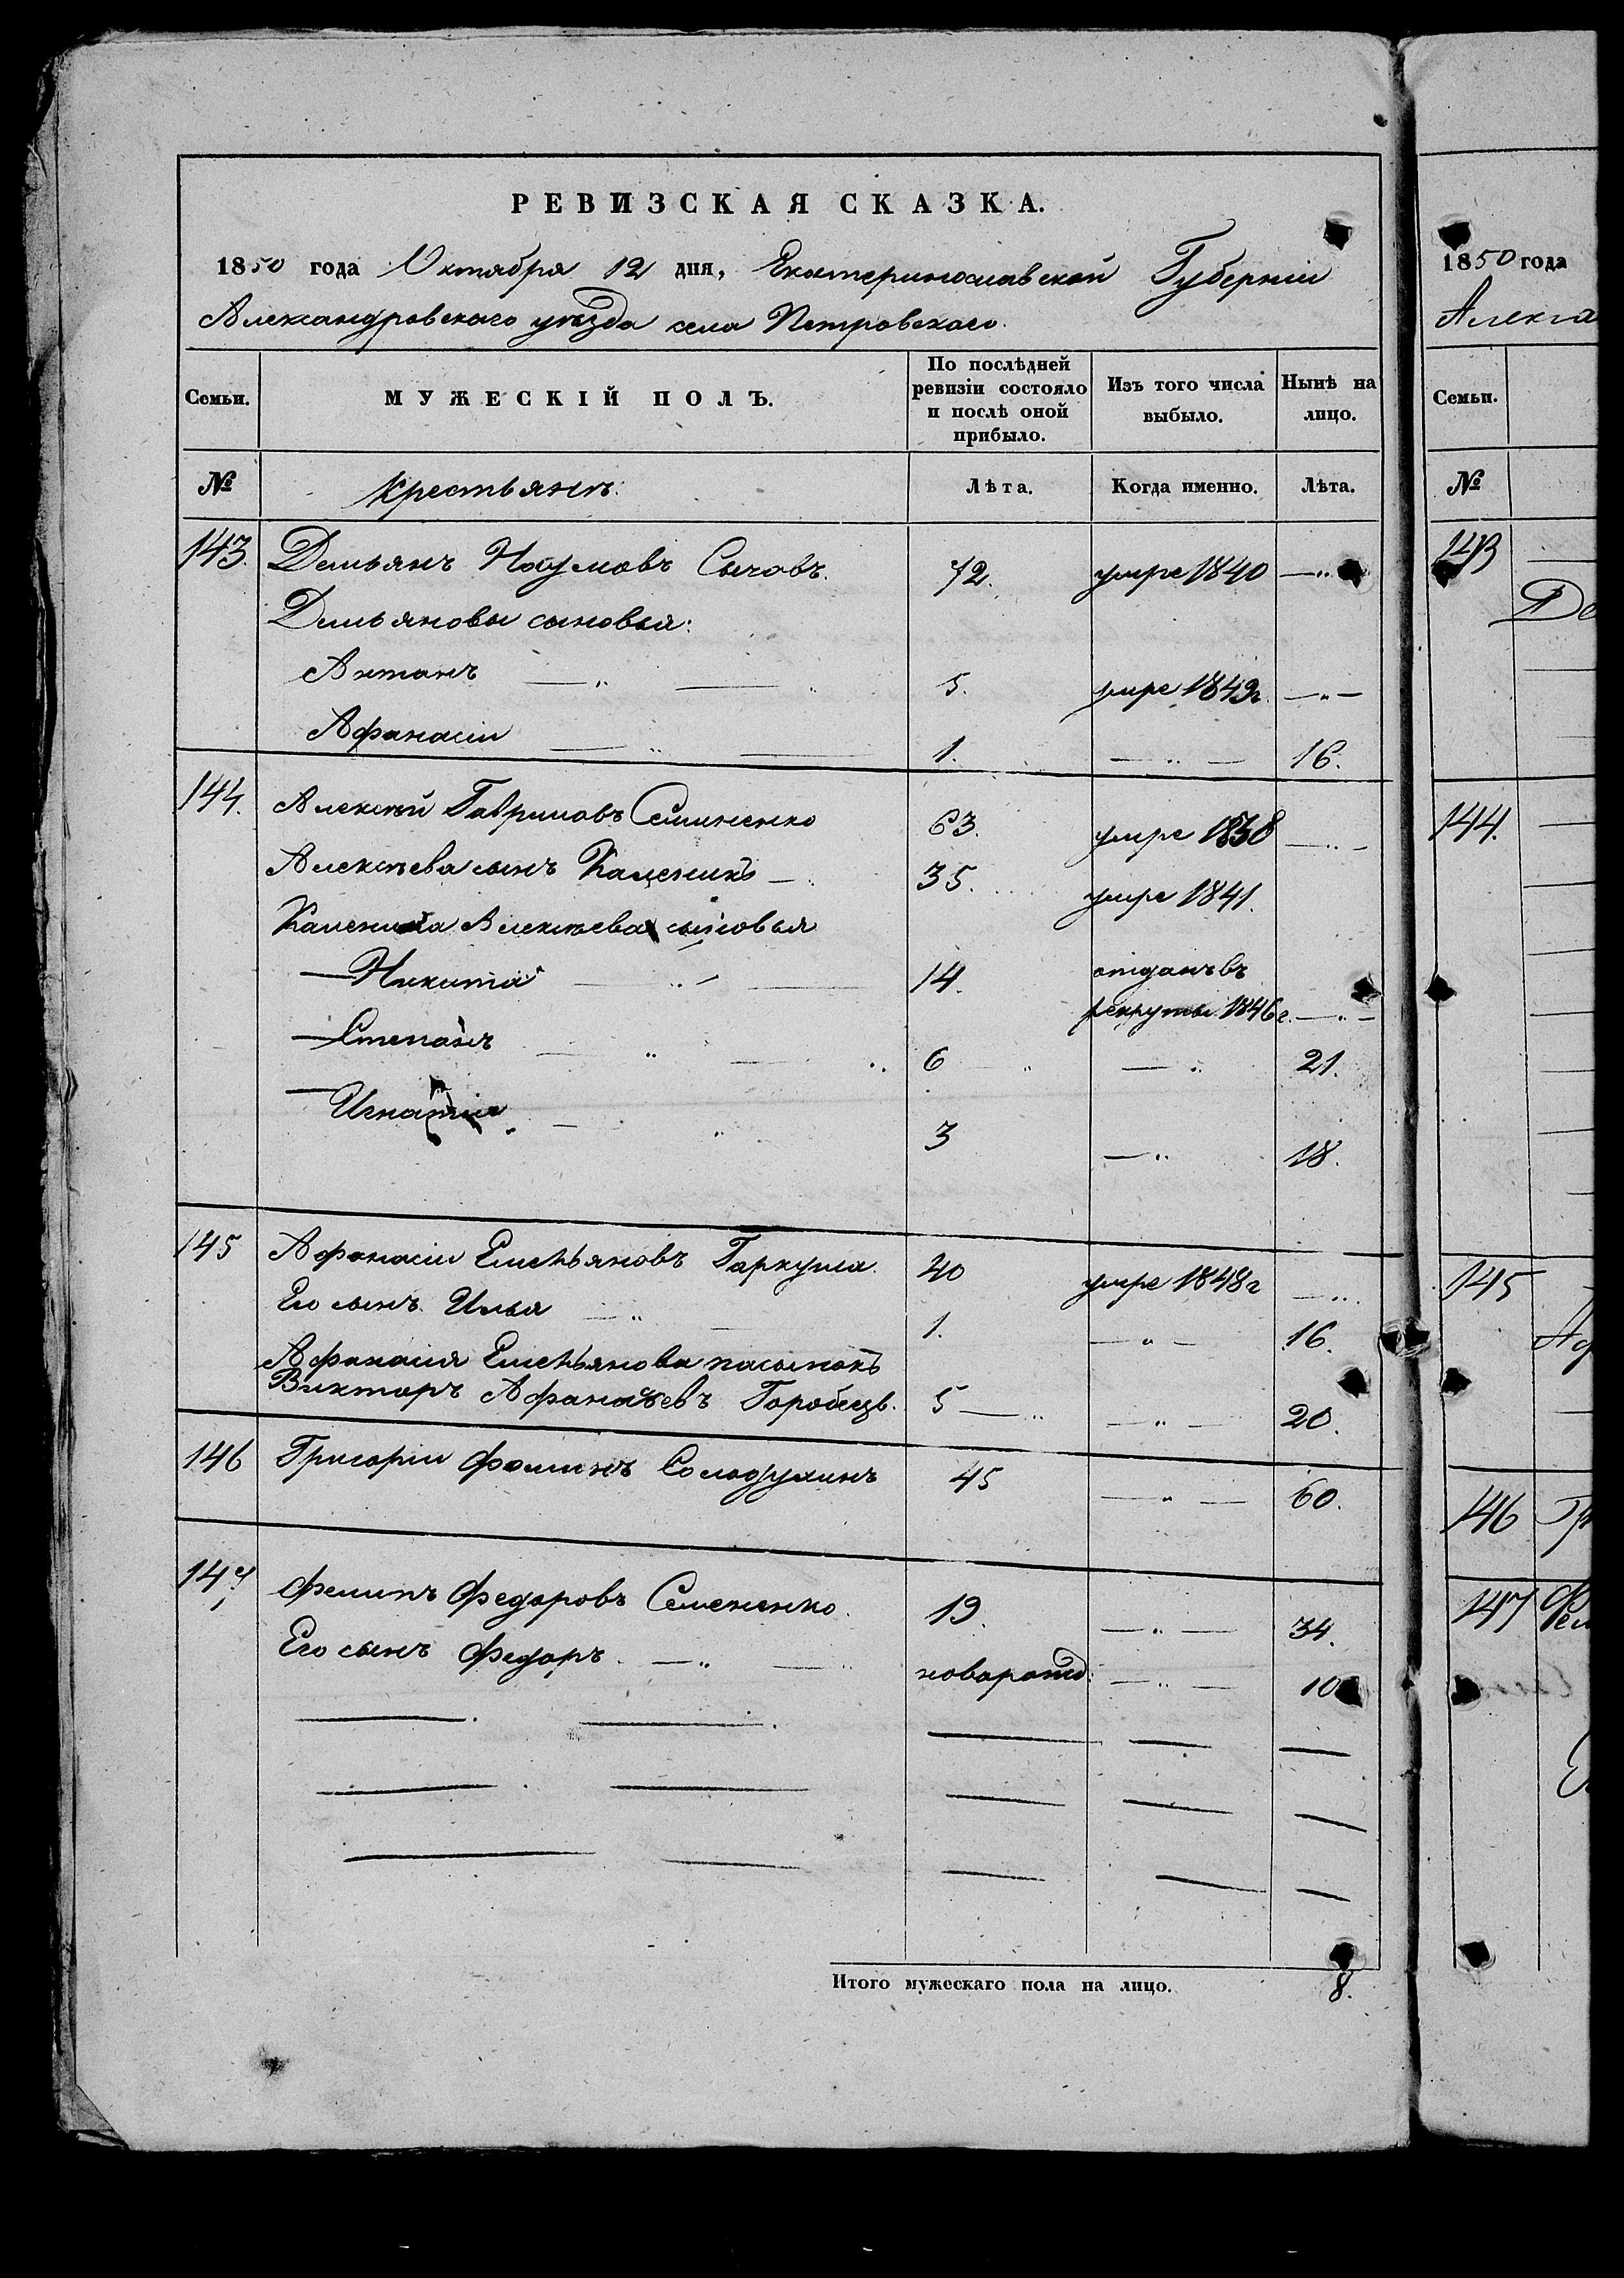 РЕВИЗСКАЯ СКАЗКА.
1850 года Октября 12 дня, Екатеринославской Губерніи
Александровскаго уѣзда села Петровскаго.
Семьи. МУЖЕСКІЙ ПОЛЪ. По послѣдней ревизіи состояло и послѣ оной прибыло. Изъ того числа выбыло. Нынѣ на лицо.
№ Крестьянъ: Лѣта. Когда именно. Лѣта.
143. Демьянъ Наумовъ Сычовъ. 72. умре 1840 — " —
Демьяновы сыновья:
Антонъ — " — " 5. умре 1849г. — " —
Афанасіи — " — 1. — " — 16.
144. Алексѣй Гавриловъ Семиненко 63. умре 1838 — " —
Алексѣева сынъ Каленикъ — " 35. умре 1841.
Каленика Алексѣева сыновья
— Никита — " — 14. отданъ въ
рекруты 1846г. — " —
— Степанъ — " — " 6 " — " 21.
— Игнатіи — " 3 — " 18.
145 Афанасіи Емельяновъ Гаркуша. 40 умре 1848г — "
Его сынъ Илья — " — 1. — " — 16.
Афанасія Емельянова пасынокъ
Викторъ Афанасьевъ Горобецъ. 5 — " — " — 20.
146 Григоріи Фоминъ Солодухинъ 45 — " — 60.
147 Филипъ Федоровъ Семененко. 19. — " — 34.
Его сынъ Федоръ. — " — " новорожд: — " — 10
Итого мужескаго пола на лицо. 8.
1850 года
Алекса
Семьи.
№
143
Де
144.
145
Аф
146 Гр
147